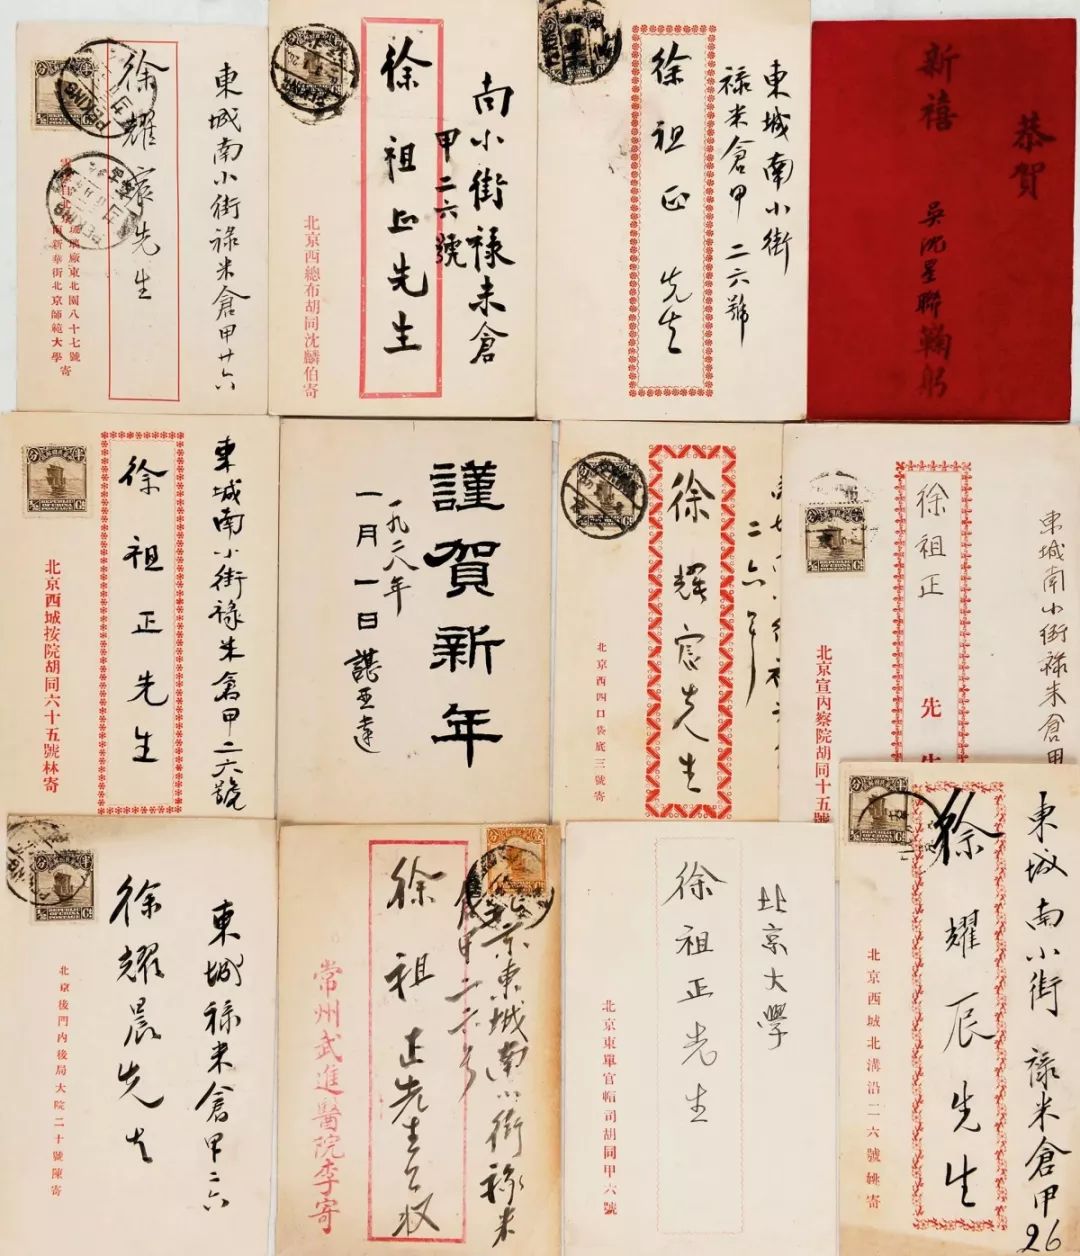 東城南小街祿米倉甲廿六
徐耀宸先生
琉璃廠東北園八十七號
南新華街北京師範大學寄
PEKING
南小街祿米倉
甲二六號
徐祖正先生
北京西總布胡同沈麟伯寄
東城南小街
祿米倉甲二六號
徐祖正先生
恭賀
新禧
吳沈星聯鞠躬
東城南小街祿米倉甲二六號
徐祖正先生
北京西城按院胡同六十五號林寄
半 分
REPUBLIC OF CHINA
POSTAGE
謹賀新年
一九二八年
一月一日
諶亞達
二六
徐耀宸先生
北京西四口袋底三號寄
東城南小街祿米倉甲
徐祖正
先生
北京宣內察院胡同十五號
東城祿米倉甲二六
徐耀晨先生
北京後門內後局大院二十號陳寄
京東城南小街祿米
倉甲二六号
徐祖正先生台收
常州武進醫院李寄
北京大學
徐祖正先生
北京東單官帽司胡同甲六號
東城南小街祿米倉甲26
徐耀辰先生
北京西城北溝沿二六號姚寄